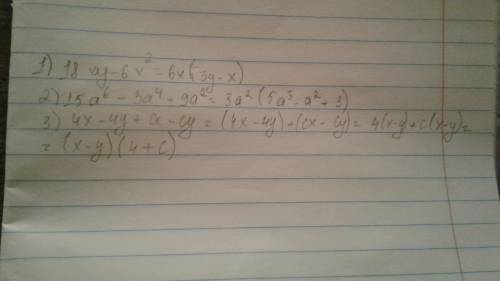 1) 18xy-6x² = 6x(3y-x)
2) 15a⁶ - 3a⁴ + 9a² = 3a² (5a³ - a² + 3)
3) 4x - 4y + cx - cy = (4x - 4y) + (cx - cy) = 4(x-y) + c(x-y) =
= (x-y)(4+c)